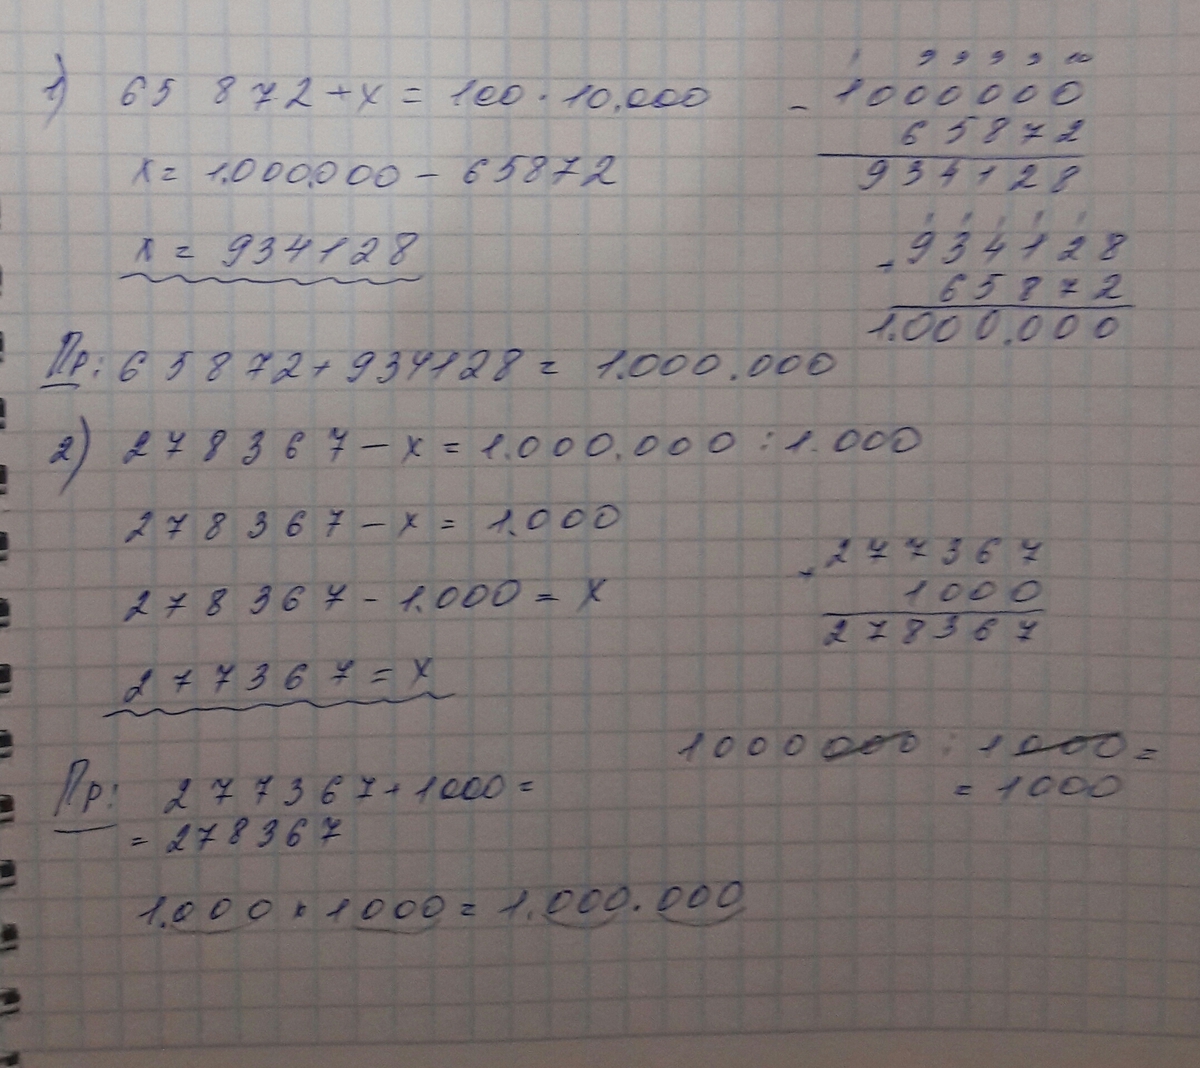 1) 65 872 + x = 100 · 10.000
x = 1.000.000 - 65872
x = 934128
9 9 9 9 10
- 1000000
65872
934128
+ 934128
65872
1.000.000
Пр: 65872 + 934128 = 1.000.000
2) 278367 - x = 1.000.000 : 1.000
278367 - x = 1.000
278367 - 1.000 = x
277367 = x
+ 277367
1000
278367
1000000 : 1000 =
= 1000
Пр: 277367 + 1000 =
= 278367
1.000 x 1000 = 1.000.000